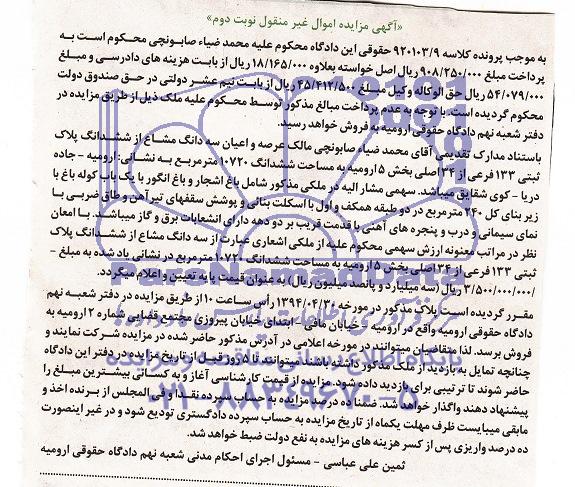 «آگهی مزایده اموال غیر منقول نوبت دوم»
به موجب پرونده کلاسه ۹۲۰۱۰۳/۹ حقوقی این دادگاه محکوم علیه محمد ضیاء صابونچی محکوم است به
پرداخت مبلغ ۹۰۸/۲۵۰/۰۰۰ ریال اصل خواسته بعلاوه ۱۸/۱۶۵/۰۰۰ ریال از بابت هزینه های دادرسی و مبلغ
۵۴/۰۷۹/۰۰۰ ریال حق الوکاله وکیل مبلغ ۴۵/۴۱۲/۵۰۰ ریال از بابت نیم عشر دولتی در حق صندوق دولت
محکوم گردیده است. با توجه به عدم پرداخت مبالغ مذکور توسط محکوم علیه ملک ذیل از طریق مزایده در
دفتر شعبه نهم دادگاه حقوقی ارومیه به فروش خواهد رسید.
باستناد مدارک تقدیمی آقای محمد ضیاء صابونچی مالک عرصه و اعیان سه دانگ مشاع از ششدانگ پلاک
ثبتی ۱۳۳ فرعی از ۳۴ اصلی بخش ۵ ارومیه به مساحت ششدانگ ۱۰۷۲۰ مترمربع به نشانی: ارومیه - جاده
دریا - کوی شقایق میباشد. سهمی مشار الیه در ملکی مذکور شامل باغ اشجار و باغ انگور با یک باب کوله باغ با
زیر بنای کل ۲۴۰ مترمربع در دو طبقه همکف و اول با اسکلت بنائی و پوشش سقفهای تیرآهن و طاق ضربی با
نمای سیمانی و درب و پنجره های آهنی با قدمت قریب بر دو دهه دارای انشعابات برق و گاز میباشد. با امعان
نظر در مراتب معنونه ارزش سهمی محکوم علیه از ملکی اشعاری عبارت از سه دانگ مشاع از ششدانگ پلاک
ثبتی ۱۳۳ فرعی از ۳۴ اصلی بخش ۵ ارومیه به مساحت ششدانگ ۱۰۷۲۰ مترمربع در نشانی یاد شده به مبلغ -
/۳/۵۰۰/۰۰۰/۰۰۰ ریال (سه میلیارد و پانصد میلیون ریال) به عنوان قیمت پایه تعیین و اعلام میگردد.
مقرر گردیده است پلاک مذکور در مورخه ۱۳۹۴/۰۴/۳۰ رأس ساعت ۱۰ از طریق مزایده در دفتر شعبه نهم
دادگاه حقوقی ارومیه واقع در ارومیه - خیابان مافی - ابتدای خیابان پیروزی مجتمع قضایی شماره ۲ ارومیه به
فروش برسد. لذا متقاضیان میتوانند در مورخه اعلامی در آدرس مذکور حاضر شده در مزایده شرکت نمایند و
چنانچه تمایل به بازدید از ملک مذکور داشته باشند میتوانند تا ۵ روز قبل از تاریخ مزایده در دفتر این دادگاه
حاضر شوند تا ترتیبی برای بازدید داده شود. مزایده از قیمت کارشناسی آغاز و به کسانی بیشترین مبلغ را
پیشنهاد دهند واگذار خواهد شد. ضمنا ده درصد مزایده به حساب سپرده نقدا و فی المجلس از برنده اخذ و
مابقی میبایست ظرف مهلت یکماه از تاریخ مزایده به حساب سپرده دادگستری تودیع شود و در غیر اینصورت
ده درصد واریزی پس از کسر هزینه های مزایده به نفع دولت ضبط خواهد شد.
ثمین علی عباسی - مسئول اجرای احکام مدنی شعبه نهم دادگاه حقوقی ارومیه
ParsNamadData
پایگاه اطلاع رسانی مناقصه و مزایده
۰۲۱-۸۸۳۴۹۶۷۰-۵